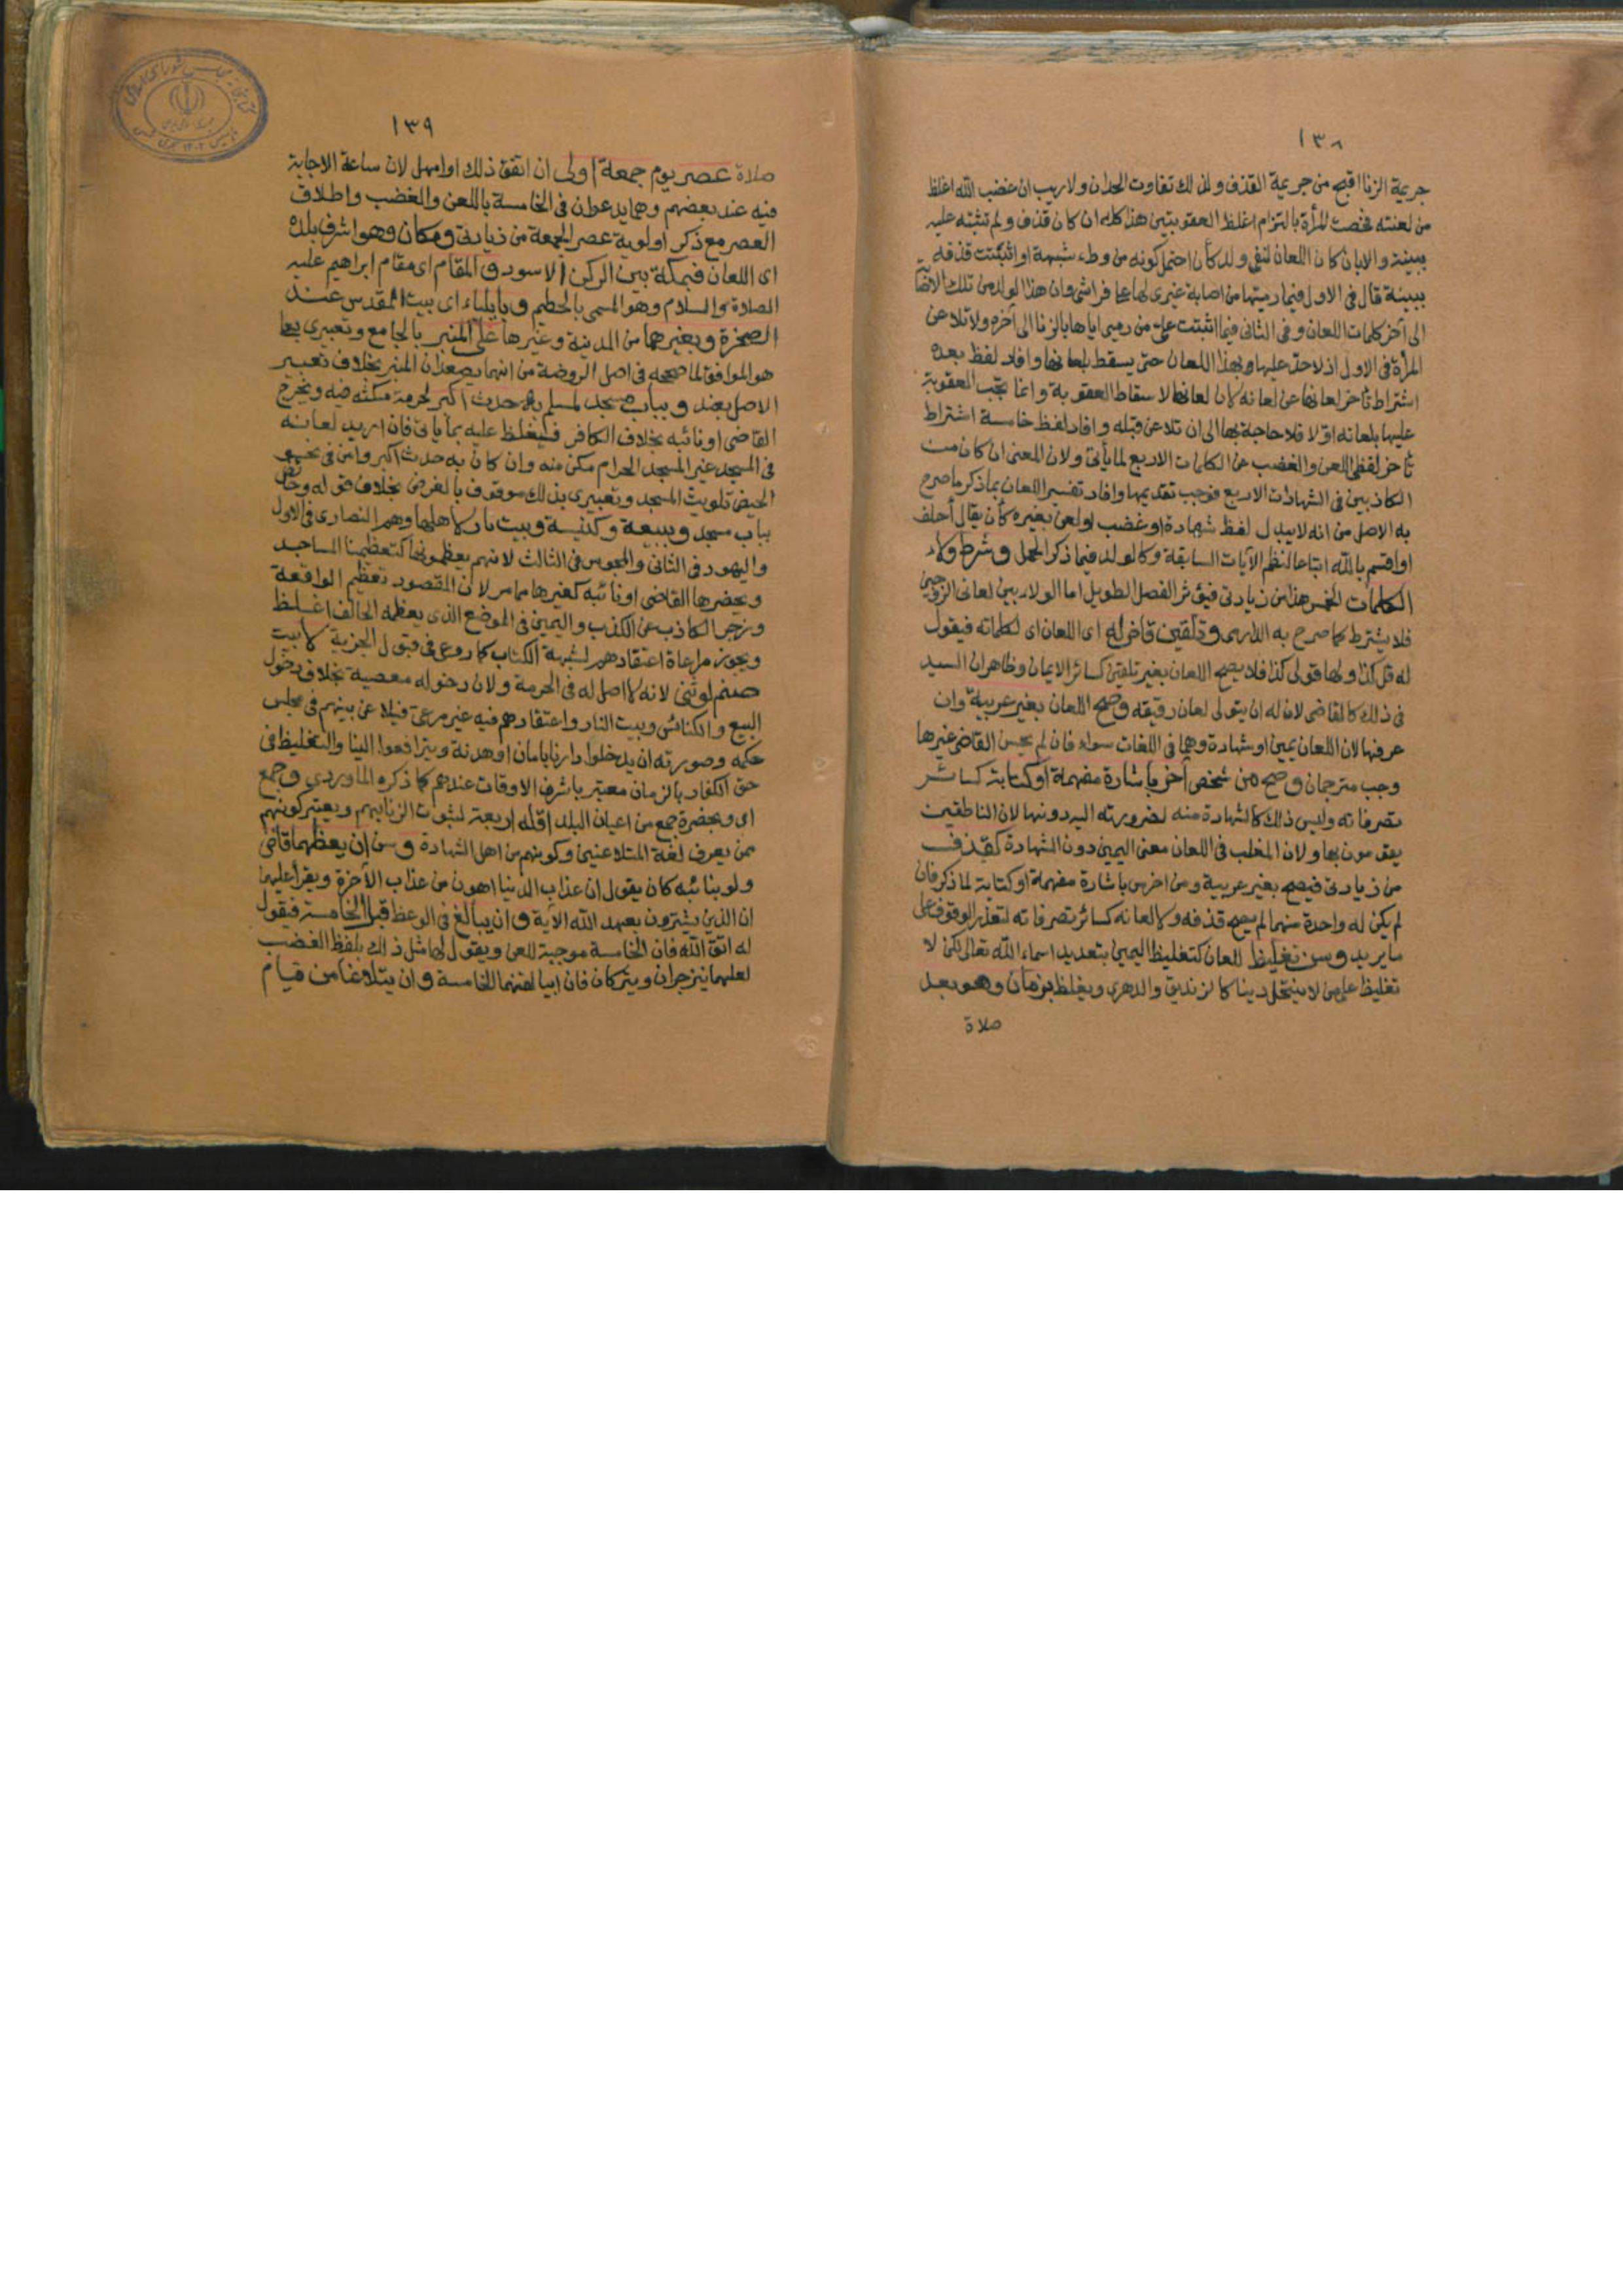 ١٣٨
جريمة الزنا اقبح من جريمة القذف ولذلك تفاوت الحدان ولا ريب ان غضب الله اغلظ
من لعنته فخصت المرأة بالتزام اغلظ العقوبتين هذا كله ان كان قذف ولم تثبته عليه
ببينة والا بان كان اللعان لنفي ولد كأن احتمل كونه من وطء شبهة او اثبتت قذفه
ببينة قال في الاول فيما رميتها من اصابة غيري لها على فراشي وان هذا الولد من تلك الاصابة
الى آخر كلمات اللعان وفي الثاني فيما اثبتت علي من رميي اياها بالزنا الى آخره ولا تلاعن
المرأة في الاول اذ لا حد عليها وبهذا اللعان حتى يسقط بلعانها وافاد لفظ بعده
اشتراط تأخر لعانها عن لعانه لان لعانها لاسقاط العقوبة وانما تجب العقوبة
عليها بلعانه اولا فلا حاجة بها الى ان تلاعن قبله وافاد لفظ خامسة اشتراط
تأخر لفظي اللعن والغضب عن الكلمات الاربع لما يأتي ولان المعنى ان كان من
الكاذبين في الشهادات الاربع فوجب تقديمها وافاد تفسير اللعان بما ذكر ما صرح
به الاصل من انه لا يبدل لفظ شهادة او غضب او لعن بغيره كأن يقال أحلف
او اقسم بالله اتباعا لنظم الآيات السابقة وكالولد فيما ذكر الحمل وشرط ولاء
الكلمات الخمس هذا من زيادتي فيؤثر الفصل الطويل اما الولاء بين لعاني الزوجين
فلا يشترط كما صرح به الدارمي وتلقين قاض له اي اللعان اي لكلماته فيقول
له قل كذا ولها قولي كذا فلا يصح اللعان بغير تلقين كسائر الايمان وظاهر ان السيد
في ذلك كالقاضي لان له ان يتولى لعان رقيقه وصح اللعان بغير عربية وان
عرفها لان اللعان يمين او شهادة وهما في اللغات سواء فان لم يحسن القاضي غيرها
وجب مترجمان وصح من شخص أخرس باشارة مفهمة او كتابة كسائر
تصرفاته وليس ذلك كالشهادة منه لضرورته اليه دونها لان الناطقين
يقومون بها ولان المغلب في اللعان معنى اليمين دون الشهادة كقذف
من زيادتي فيصح بغير عربية ومن اخرس باشارة مفهمة او كتابة لما ذكر فان
لم يكن له واحدة منهما لم يصح قذفه ولا لعانه كسائر تصرفاته لتعذر الوقوف على
ما يريد وسن تغليظ للعان كتغليظ اليمين بتعديد اسماء الله تعالى لكن لا
تغليظ على من لا ينتحل دينا كالزنديق والدهري ويغلظ بزمان وهو بعد
صلاة
١٣٩
صلاة عصر يوم جمعة اولى ان اتفق ذلك او امهل لان ساعة الاجابة
فيه عند بعضهم وهما يدعوان في الخامسة باللعن والغضب واطلاق
العصر مع ذكر اولوية عصر الجمعة من زيادتي ومكان وهو اشرف بلده
اي اللعان فبمكة بين الركن الاسود والمقام اي مقام ابراهيم عليه
الصلاة والسلام وهو المسمى بالحطيم وبايلياء اي بيت المقدس عند
الصخرة وبغيرهما من المدينة وغيرها على المنبر بالجامع وتعبيري بعلى
هو الموافق لما صححه في اصل الروضة من انهما يصعدان المنبر بخلاف تعبير
الاصل بعند وبباب مسجد لمسلم به حدث اكبر لحرمة مكثه فيه ويخرج
القاضي او نائبه بخلاف الكافر فيغلظ عليه بما يأتي فان اريد لعانه
في المسجد غير المسجد الحرام مكن منه وان كان به حدث اكبر وأمن في نحو
الحيض تلويث المسجد وتعبيري بذلك موقوف بالغرض بخلاف قوله وحائض
بباب مسجد وببيعة وكنيسة وبيت نار لاهلها وهم النصارى في الاول
واليهود في الثاني والمجوس في الثالث لانهم يعظمونها كتعظيمنا المساجد
ويحضرها القاضي او نائبه كغيرها مما مر لان المقصود تعظيم الواقعة
وزجر الكاذب عن الكذب واليمين في الموضع الذي يعظمه الحالف اغلظ
ويجوز مراعاة اعتقادهم لشبهة الكتاب كما روعي في قبول الجزية لا بيت
صنم لوثني لانه لا اصل له في الحرمة ولان دخوله معصية بخلاف دخول
البيع والكنائس وبيت النار واعتقادهم فيه غير مرعي فيلاعن بينهم في مجلس
حكمه وصورته ان يدخلوا دارنا بامان او هدنة ويترافعوا الينا والتغليظ في
حق الكفار بالزمان معتبر باشرف الاوقات عندهم كما ذكره الماوردي وجمع
اي وبحضرة جمع من اعيان البلد اقله اربعة لثبوت الزنا بهم ويعتبر كونهم
ممن يعرف لغة المتلاعنين وكونهم من اهل الشهادة وسن ان يعظهما قاض
ولو بنائبه كأن يقول ان عذاب الدنيا اهون من عذاب الآخرة ويقرأ عليهما
ان الذين يشترون بعهد الله الآية وان يبالغ في الوعظ قبل الخامسة فيقول
له اتق الله فان الخامسة موجبة للعن ويقول لها مثل ذلك بلفظ الغضب
لعلهما ينزجران ويتركان فان ابيا لقنهما الخامسة وان يتلاعنا من قيام